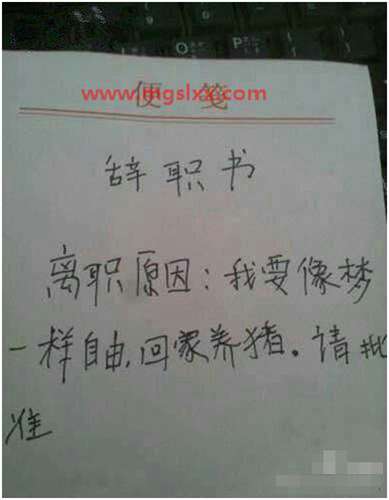 便笺
www.mgslxx.com
辞职书
离职原因：我要像梦
一样自由，回家养猪。请批
准